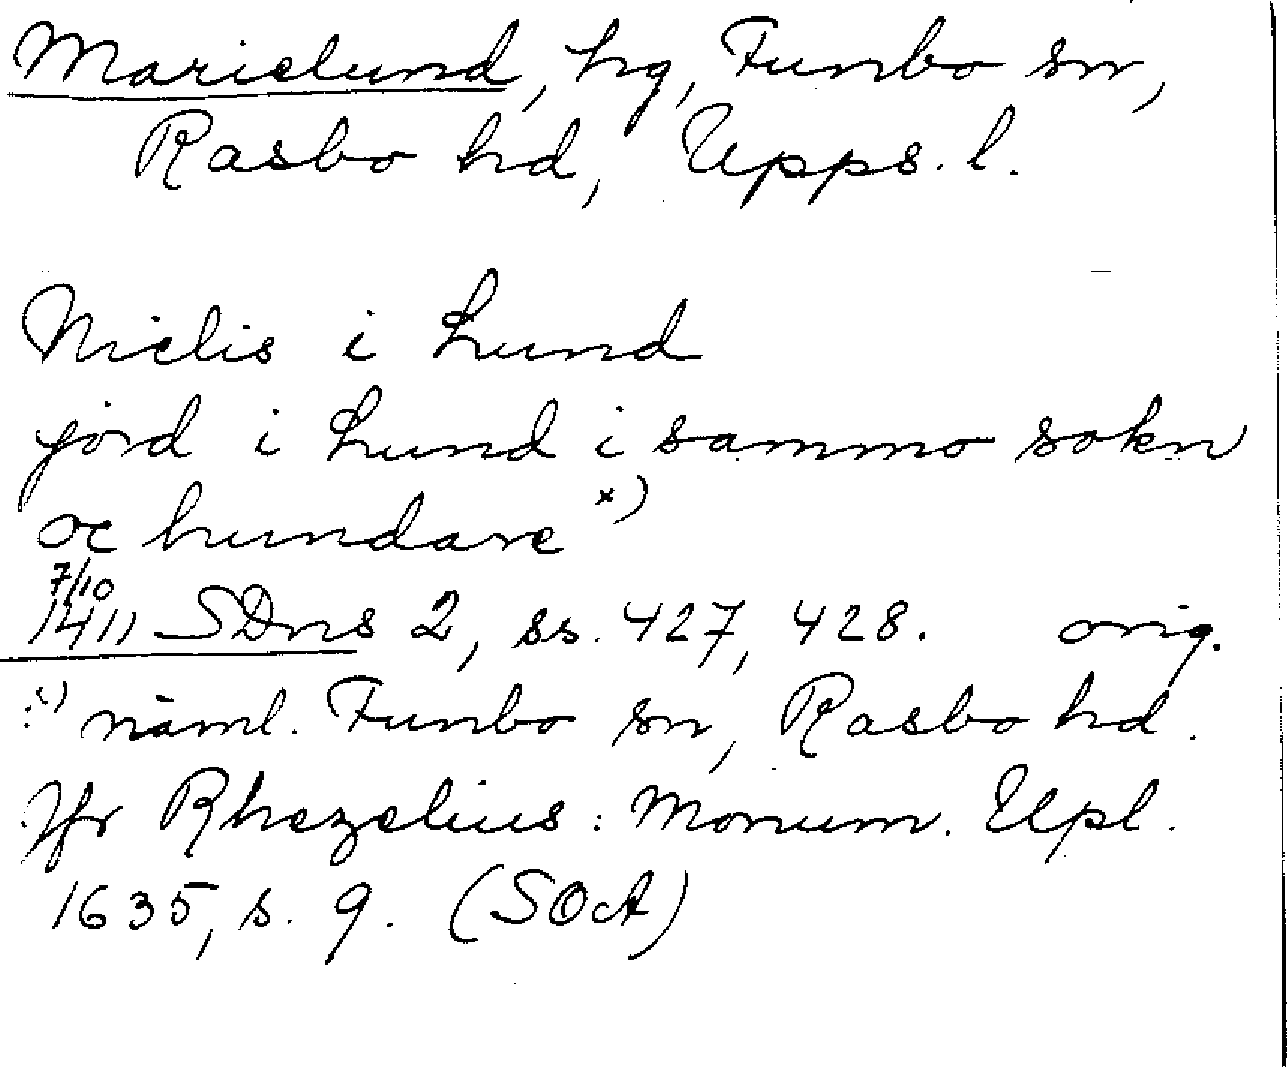 Marielund, hg, Funbo sn,
Rasbo hd, Upps. l.
Nielis i Lund
jord i Lund i sammo sokn
oc hundare x)
7/10
1411 SDns 2, ss. 427, 428. orig.
x) näml. Funbo sn, Rasbo hd.
Jfr Rhezelius: Monum. Upl.
1635, s. 9. (SOA)